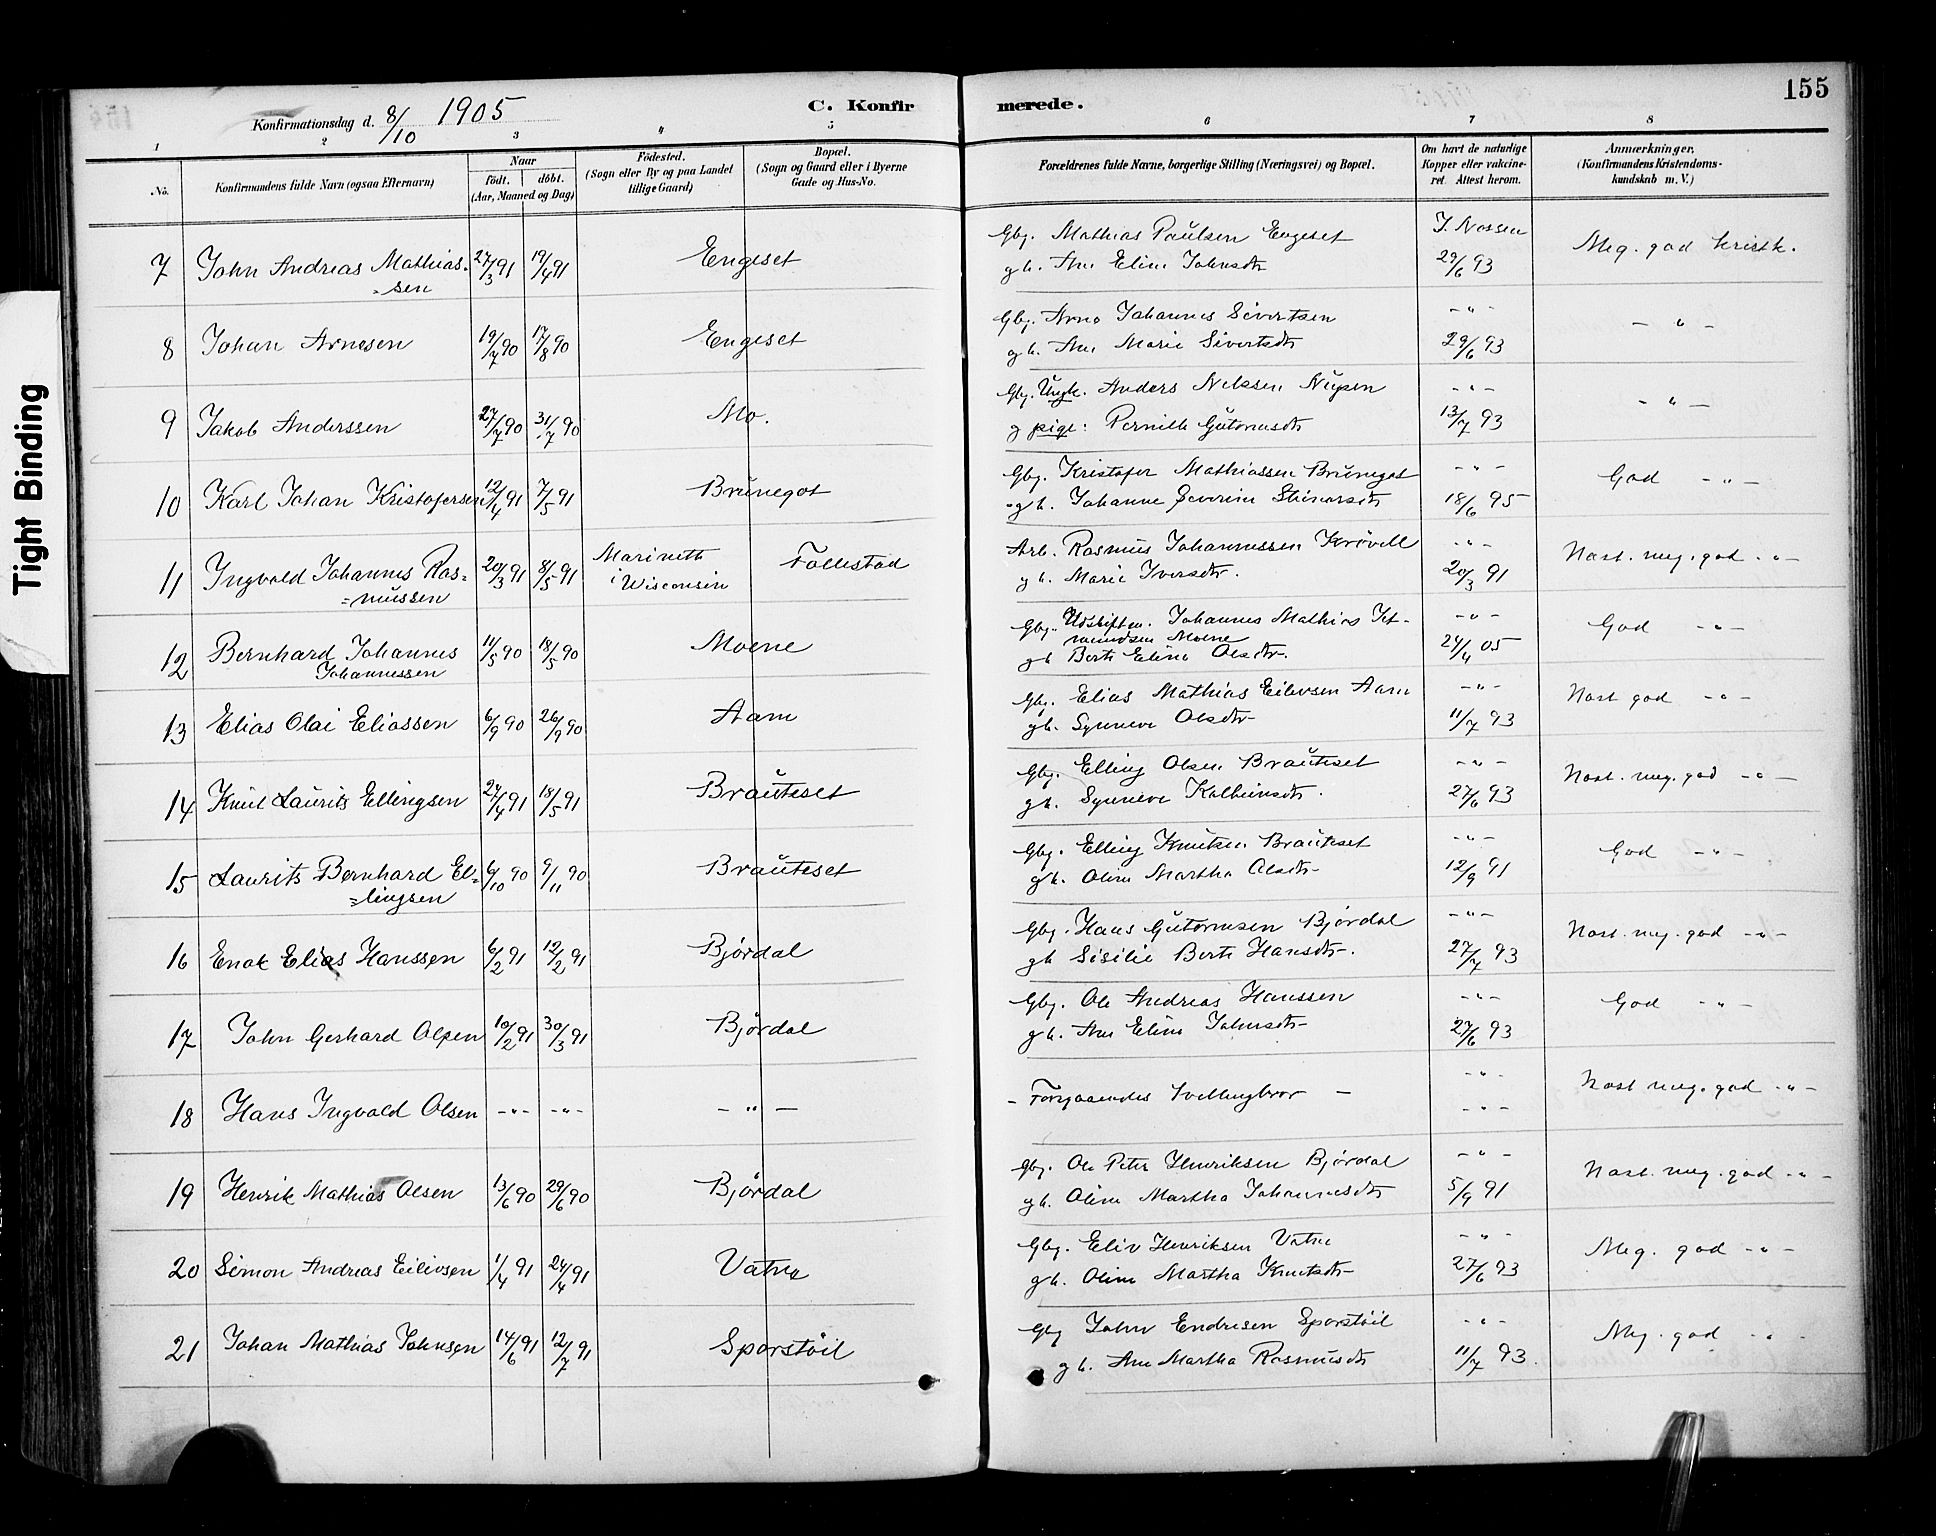 155
Konfirmationsdag d. 8/10 1905
C. Konfirmerede.
1 2 3 4 5 6 7 8
No.
Konfirmandens fulde Navn (ogsaa Efternavn)
Naar
födt. döbt.
(Aar, Maaned og Dag)
Födested.
(Sogn eller By og paa Landet
tillige Gaard)
Bopæl.
(Sogn og Gaard eller i Byerne
Gade og Hus-No.
Forældrenes fulde Navne, borgerlige Stilling (Næringsvei) og Bopæl.
Om havt de naturlige
Kopper eller vakcine-
ret. Attest herom.
Anmærkninger.
(Konfirmandens Kristendoms-
kundskab m. V.)
7 John Andreas Mathias- 27/3 91 19/4 91 Engeset Gbj. Mathias Paulsen Engeset J. Nossen Meg. god kristk.
=sen g h. Ane Eline Johnsdtr 29/6 93
8 Johan Arnesen 19/7 90 17/8 90 Engeset Gbj. Arne Johannes Sivertsen -"- -"-
g h. Ane Marie Sivertsdtr 29/6 93
9 Jakob Anderssen 27/7 90 31/7 90 Mo. Gbj. Ungk. Anders Nilssen -"- -"-
g pige: Pernille Gutormsdtr 13/7 93
10 Karl Johan Kristofersen 12/4 91 7/5 91 Brunegot Gbj. Kristofer Mathiassen Brunegot -"- God -"-
g h. Johanne Severine Steinarsdtr 18/6 95
11 Ingvald Johannes Ras= 20/3 91 8/5 91 Marineth Follestad Arb. Rasmus Johannessen Krøvell -"- Nast. meg. god -"-
=mussen i Wisconsin g h. Marie Iversdtr. 20/3 91
12 Bernhard Johannes 11/5 90 18/5 90 Moene Gbj. Udskiftn. Johannes Mathias Jet- -"- God -"-
Johannessen mundsen Moene
g h Berte Eline Olsdtr. 24/4 05
13 Elias Olai Eliassen 6/9 90 26/9 90 Aam Gbj. Elias Mathias Eilevsen Aam -"- Nast god -"-
g h. Synneve Olsdtr 11/7 93
14 Knut Laurits Ellingsen 27/4 91 18/5 91 Brauteset Gbj. Elling Olsen Brauteset -"- Nast. meg. god -"-
g h. Synneve Kolbeinsdtr. 27/6 93
15 Laurits Bernhard El= 6/10 90 9/11 90 Brauteset Gbj. Elling Knutsen Brauteset -"- God -"-
=lingsen g h. Oline Martha Olsdtr 12/9 91
16 Enok Elias Hanssen 6/2 91 12/2 91 Bjørdal Gbj. Hans Gutormsen Bjørdal -"- Nast. meg. god -"-
g h Sisilie Berte Hansdtr. 27/7 93
17 John Gerhard Olsen 10/2 91 30/3 91 Bjørdal Gbj. Ole Andreas Hanssen -"- God -"-
g h. Ane Eline Johnsdtr 27/6 93
18 Hans Ingvald Olsen -"- -"- -"- - Forgaaendes tvillingbror - -"- Nast meg. god -"-
-"-
19 Henrik Mathias Olsen 13/6 90 29/6 90 Bjørdal Gbj. Ole Peter Henriksen Bjørdal -"- Nast. meg. god -"-
g h. Oline Martha Johannesdtr 5/9 91
20 Simon Andreas Eilivsen 1/4 91 24/4 91 Vatne Gbj. Eliv Henriksen Vatne -"- Meg. god -"-
g h. Oline Martha Knutsdtr 27/6 93
21 Johan Mathias Johnsen 14/6 91 12/7 91 Sporstöil Gbj John Endresen Sporstöil -"- Meg. god -"-
g h. Ane Martha Rasmusdtr 11/7 93.
Tight Binding